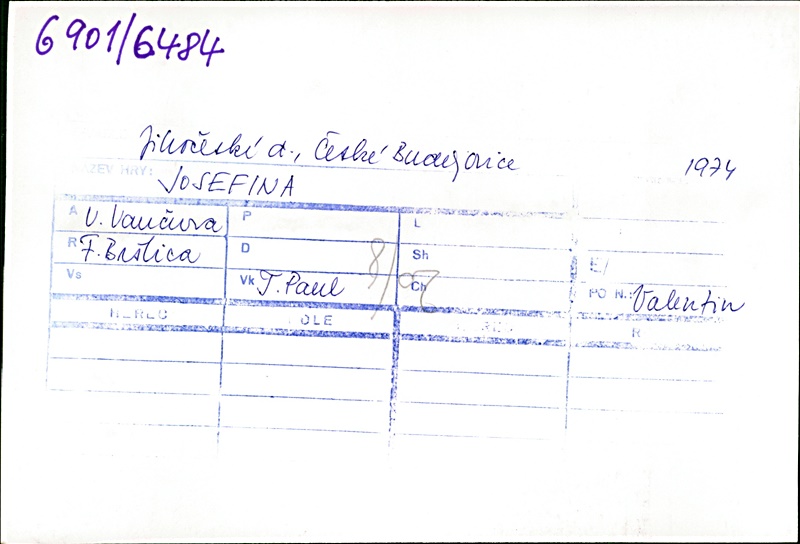 6901/6484
Jihočeské d., České Budějovice 1974
NÁZEV HRY: JOSEFINA
A V. Vančura P L
R F. Brštica D Sh E/
Vs Vk T. Paul 8/ Ch PO N.: Valentin
HEREC ROLE HEREC R